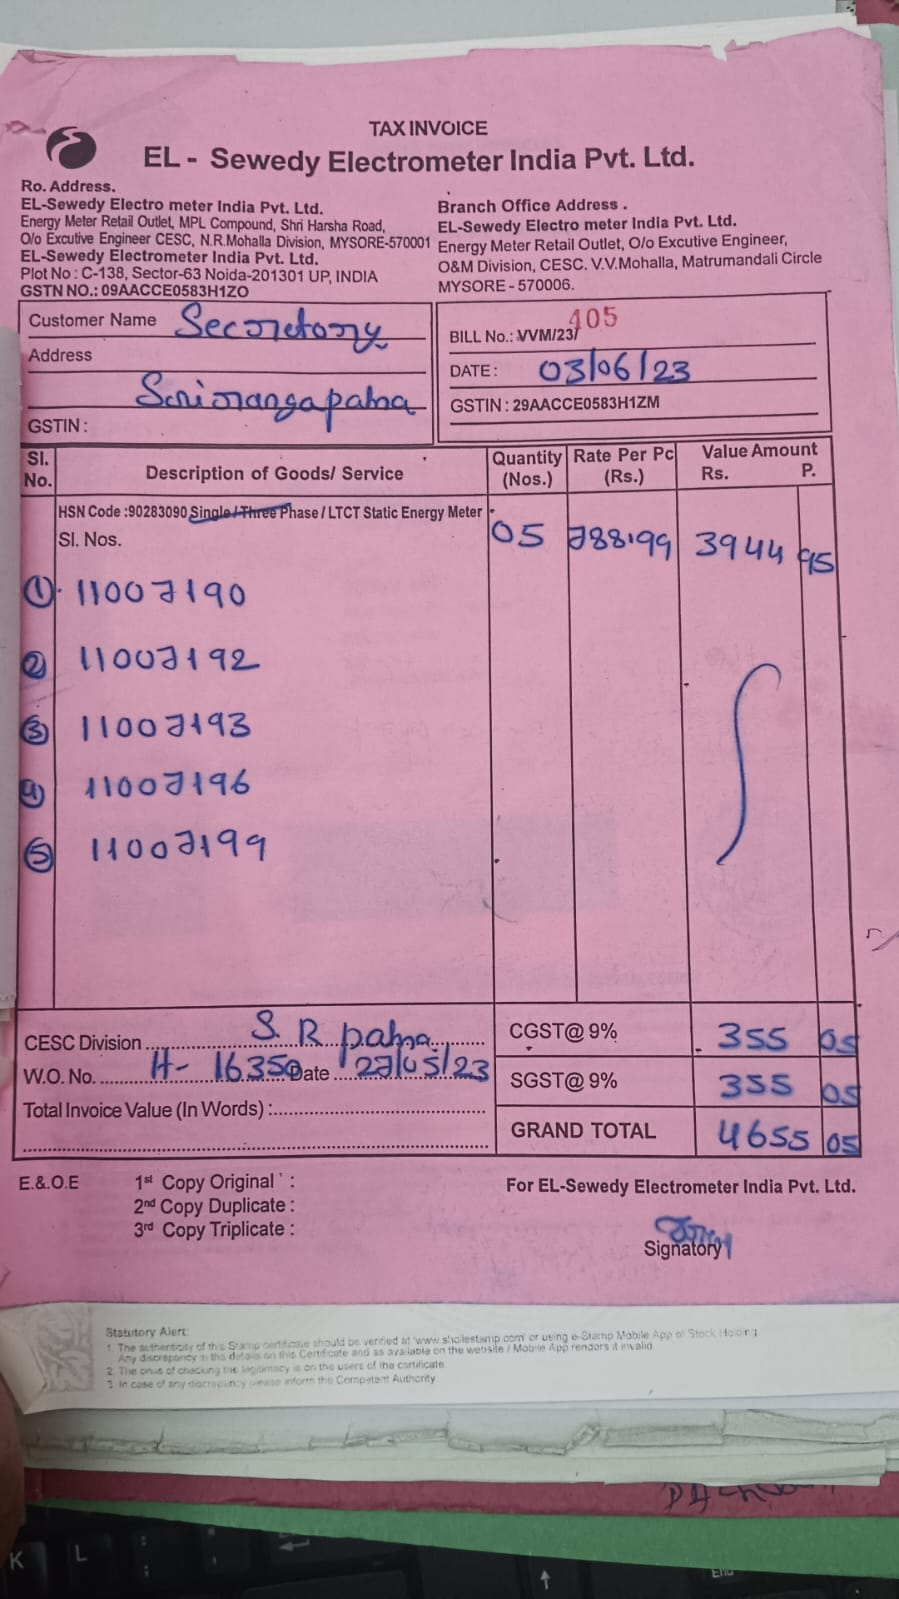 TAX INVOICE
EL - Sewedy Electrometer India Pvt. Ltd.
Ro. Address.
EL-Sewedy Electro meter India Pvt. Ltd.
Energy Meter Retail Outlet, MPL Compound, Shri Harsha Road,
O/o Excutive Engineer CESC, N.R.Mohalla Division, MYSORE-570001
EL-Sewedy Electrometer India Pvt. Ltd.
Plot No : C-138, Sector-63 Noida-201301 UP, INDIA
GSTN NO.: 09AACCE0583H1ZO
Branch Office Address .
EL-Sewedy Electro meter India Pvt. Ltd.
Energy Meter Retail Outlet, O/o Excutive Engineer,
O&M Division, CESC. V.V.Mohalla, Matrumandali Circle
MYSORE - 570006.
Customer Name Secretory
Address
Srirangapatna
GSTIN :
BILL No.: VVM/23/ 405
DATE : 03/06/23
GSTIN : 29AACCE0583H1ZM
Sl. No. Description of Goods/ Service Quantity (Nos.) Rate Per Pc (Rs.) Value Amount Rs. P.
HSN Code :90283090 Single / Three Phase / LTCT Static Energy Meter
Sl. Nos. 05 788.99 3944 95
1 11007190
2 11007192
3 11007193
4 11007196
5 11007199
CESC Division S. R patna
W.O. No. H- 16350 Date 27/05/23
Total Invoice Value (In Words) :
CGST@ 9% 355 05
SGST@ 9% 355 05
GRAND TOTAL 4655 05
E.&.O.E
1st Copy Original :
2nd Copy Duplicate :
3rd Copy Triplicate :
For EL-Sewedy Electrometer India Pvt. Ltd.
Signatory
Statutory Alert:
1. The authenticity of this Stamp certificate should be verified at 'www.shcilestamp.com' or using e-Stamp Mobile App of Stock Holding
Any discrepancy in the details on this Certificate and as available on the website / Mobile App renders it invalid.
2. The onus of checking the legitimacy is on the users of the certificate.
3. In case of any discrepancy please inform the Competent Authority.
K
L
End